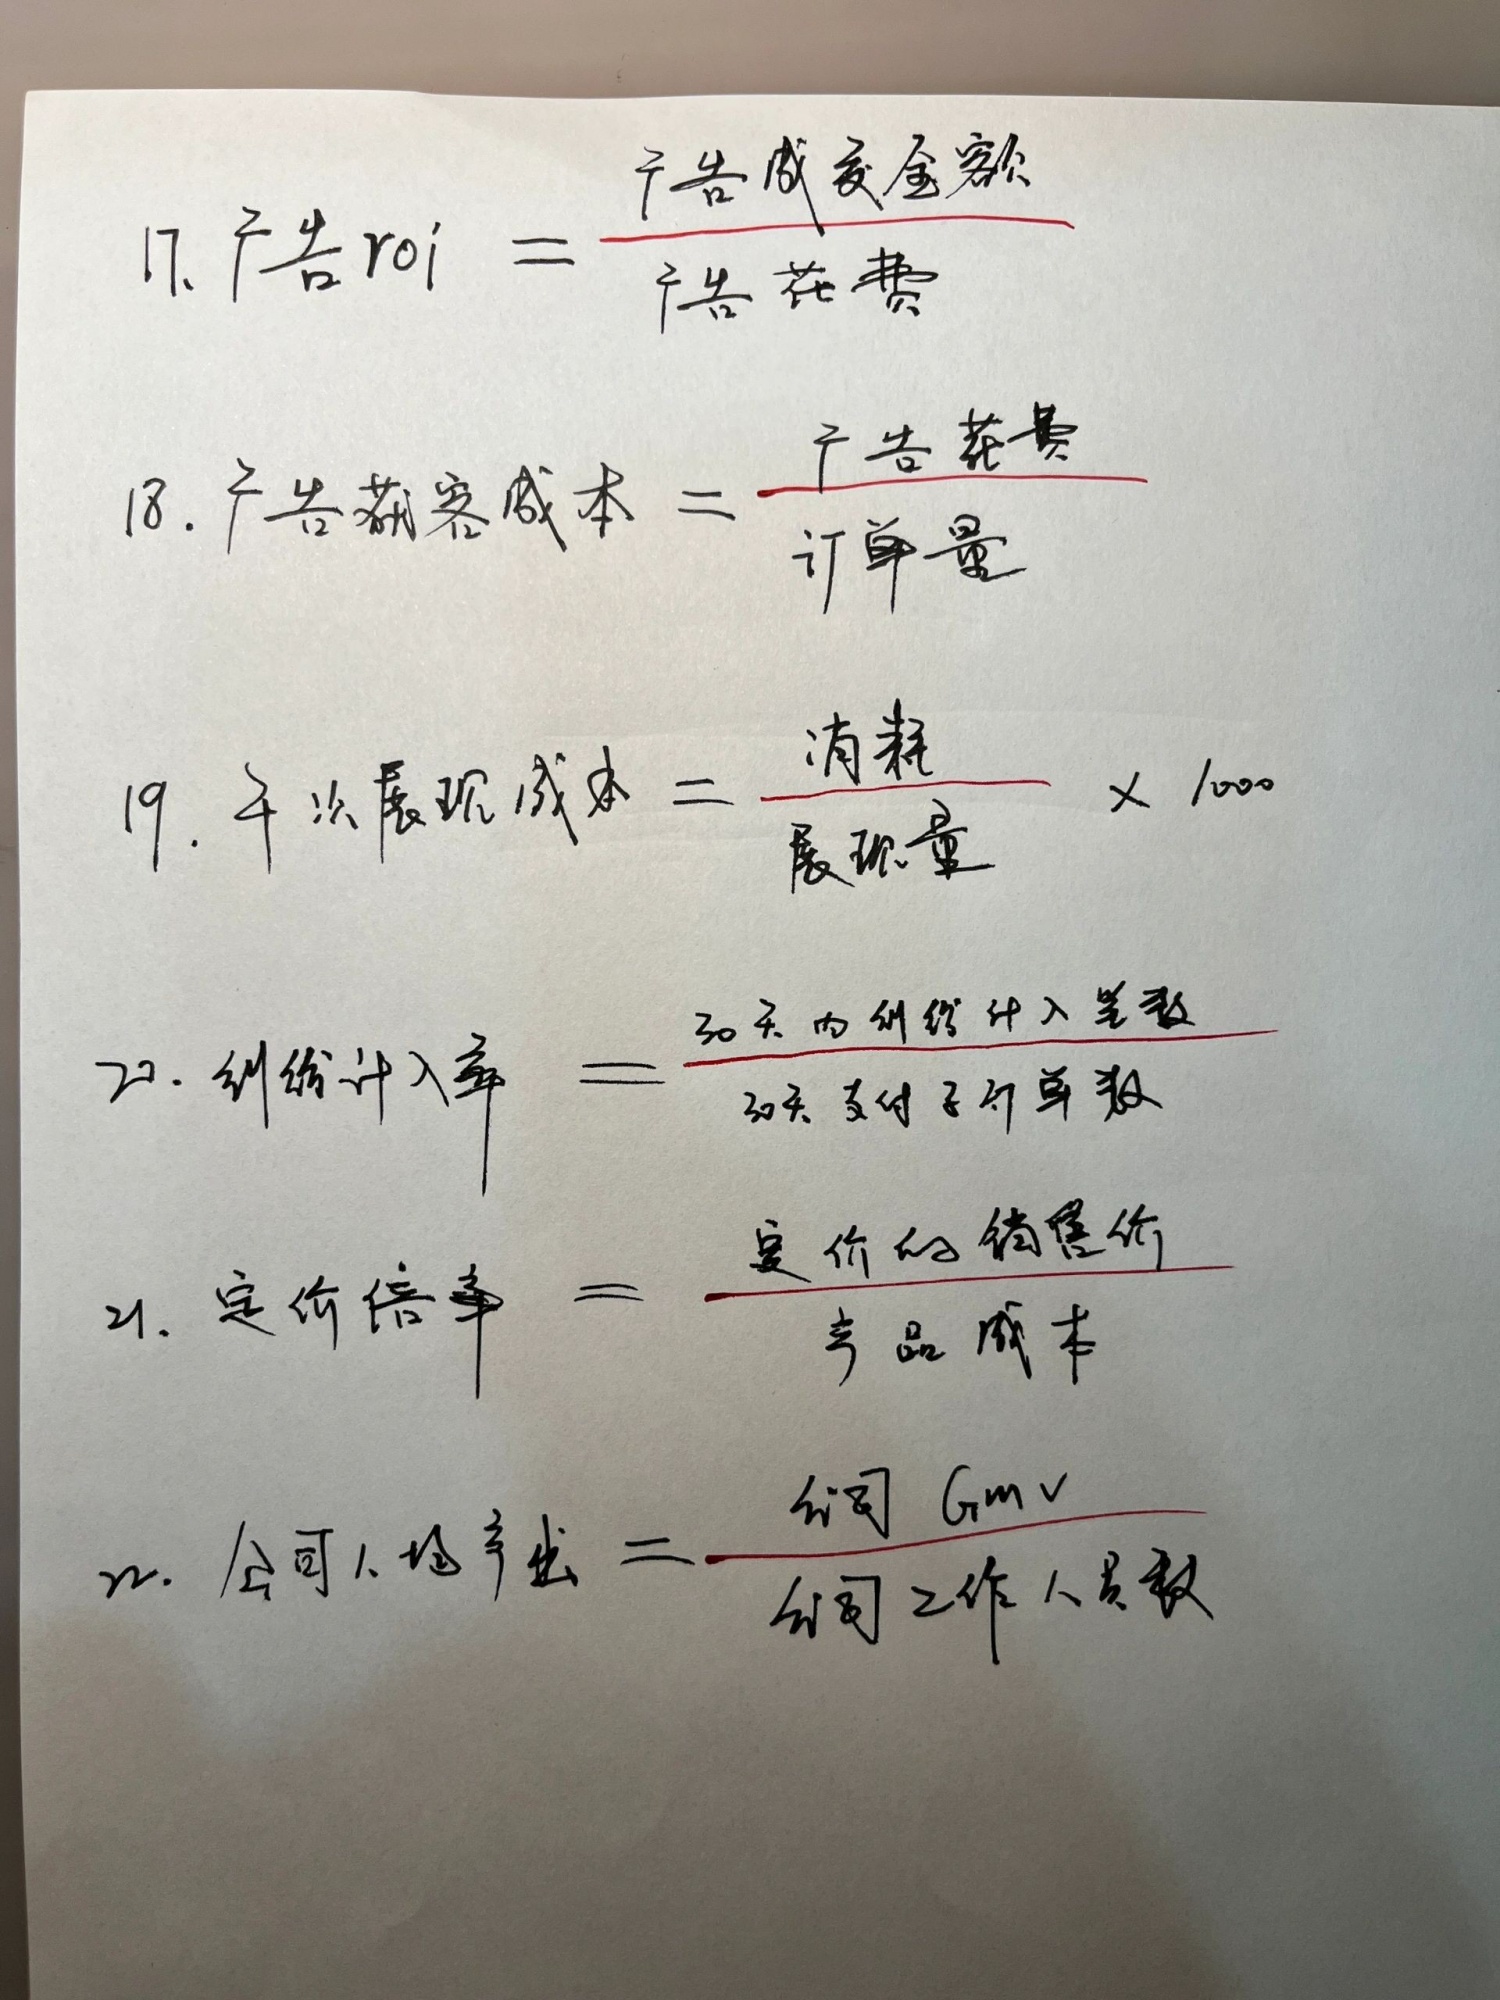 广告成交金额
17. 广告roi =
广告花费
广告花费
18. 广告获客成本 =
订单量
消耗
19. 千次展现成本 = × 1000
展现量
30天内纠纷计入笔数
20. 纠纷计入率 =
30天支付子订单数
定价的销售价
21. 定价倍率 =
产品成本
公司 Gmv
22. 公司人均产出 =
公司工作人员数